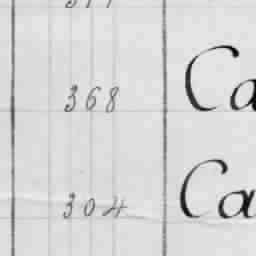 368 Ca
304 Ca